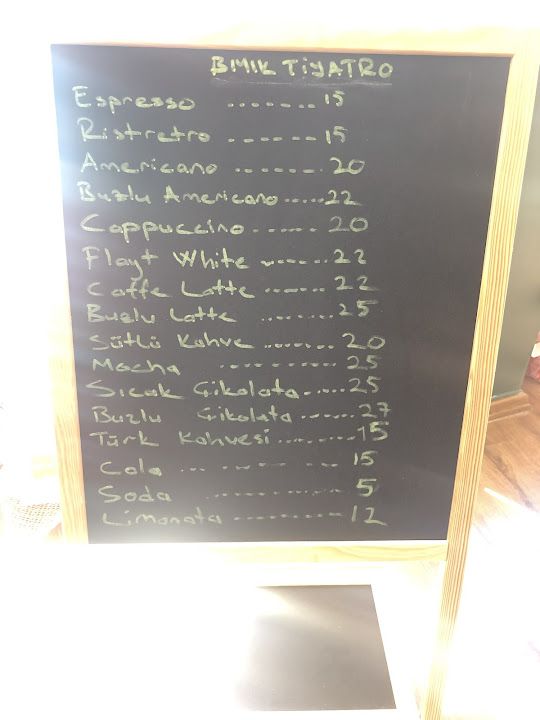 BMIK TİYATRO
Espresso ........ 15
Ristretro ....... 15
Americano ........ 20
Buzlu Americano ..... 22
Cappuccino ...... 20
Flayt White ...... 22
Caffe Latte ....... 22
Buzlu Latte ........ 25
Sütlü Kahve ....... 20
Mocha ........... 25
Sıcak Çikolata ...... 25
Buzlu Çikolata ...... 27
Türk Kahvesi ......... 15
Cola ... ... .... ... 15
Soda ............ 5
Limonata ............ 12